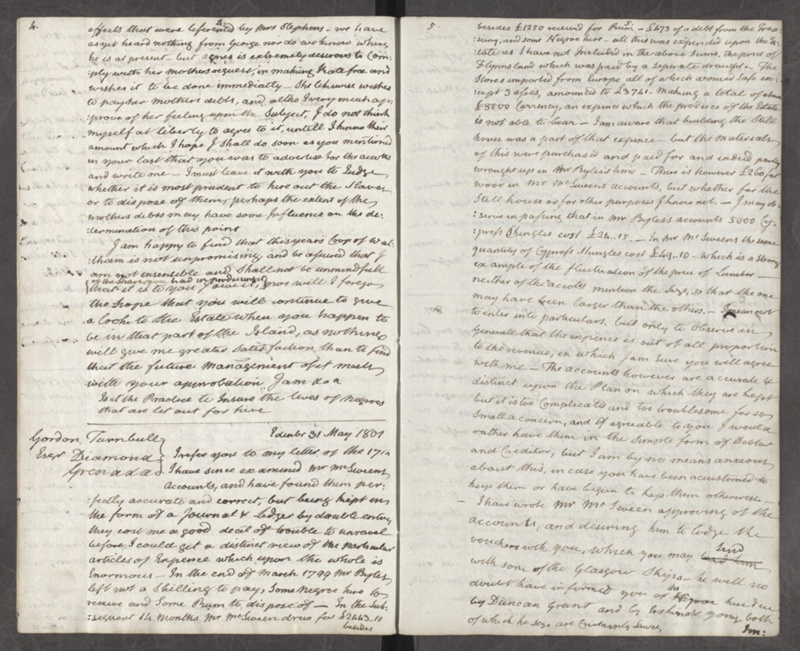 4.
effects that were left her by Mrs Stephens – we have
as yet heard nothing from George nor do we know where
he is at present – but Agnes is extremely desirous to Com
ply with her mothers request, in making Kate free and
wishes it to be done immediately – She likewise wishes
to pay her mothers debts, and altho I very much ap:
:prove of her feeling upon the Subject, I do not think
myself at liberty to agree to it, untill I know their
amount which I hope I shall do soon as you mentioned
in your last that you was to advertise for the accots
and write me – I must leave it with you to Judge
whether it is most prudent to hire out the slaves
or to dispose of them, perhaps the extent of the
mothers debts may have some Influence on the de:
:termination of this point
I am happy to find that this years Crop of Wal
tham is not unpromising and be assured that I
am not insensible and shall not be unmindfull
of the share you had in producing
that it is to you I owe it, nor will I forego
the hope that you will continue to give
a look to the Estate when you happen to
be in that part of the Island, as nothing
will give me greater Satisfaction than to find
that the future management of it meets
with your approbation, I am &a
Is it the Practice to Insure the lives of Negroes
that are let out for hire
Edinbr 31 May 1801
Gordon Turnbull
Esqr Diamond
Grenada
I refer you to my letter of the 17th
I have since examined Mr McSweens
Accounts, and have found them per:
:fectly accurate and correct, but being kept in
the form of a Journal & Ledger by double entry
they cost me a good deal of trouble to unravel
before I could get a distinct view of the particular
articles of Expence which upon the whole is
Enormous – In the end of March 1799 Mr Byles
left not a Shilling to pay, Some Negroe hire to
receive and Some Rum to dispose of – In the Sub:
:sequent 14 months Mr McSween drew for £2443..10
besides
5.
besides £1350 received for Rum – £473 of a debt from the Trea
sury, and some Negroe hire – all this was expended upon the Es
tate as I have not included in the above Sums, the price of
Flynns land which was paid by a seperate draught – The
Stores imported from Europe all of which arrived Safe ex:
:cept 3 asses, amounted to £3741 – Making a total of about
£8000 Currency, an expence which the produce of the Estate
is not able to bear – I am aware that building the Still
house was a part of that expence – but the materials
of this were purchased and paid for and indeed partly
wrought up in Mr Byles's time – There is however £260 for
wood in Mr McSweens accounts, but whether for the
Still house or for other purposes I know not – I may ob
:serve in passing that in Mr Byles's accounts 5000 Cy:
:press Shingles cost £24..15 – In Mr McSweens the same
quantity of Cypress Shingles cost £49..10 – which is a strong
example of the fluctuation of the price of Lumber –
neither of the accots mention the Size, so that the one
may have been larger than the others – I mean not
to enter into particulars, but only to Observe in
Generall that the expence is out of all proportion
to the revenue, in which I am sure you will agree
with me – The accounts however are accurate &
distinct upon the Plan on which they are kept
but it is too Complicated and too troublesome for so
Small a concern, and if agreeable to you I would
rather have them in the simple form of Debtor
and Creditor, but I am by no means anxious
about this, in case you have been accustomed to
keep them or have begun to keep them otherwise –
– I have wrote Mr McSween approving of the
accounts, and desiring him to lodge the
vouchers with you, which you may send
with some of the Glasgow Ships – he will no
doubt have informed you of the Negroe hire due
by Duncan Grant and by Loshington young both
of which he says are Certainly Secure
Im: